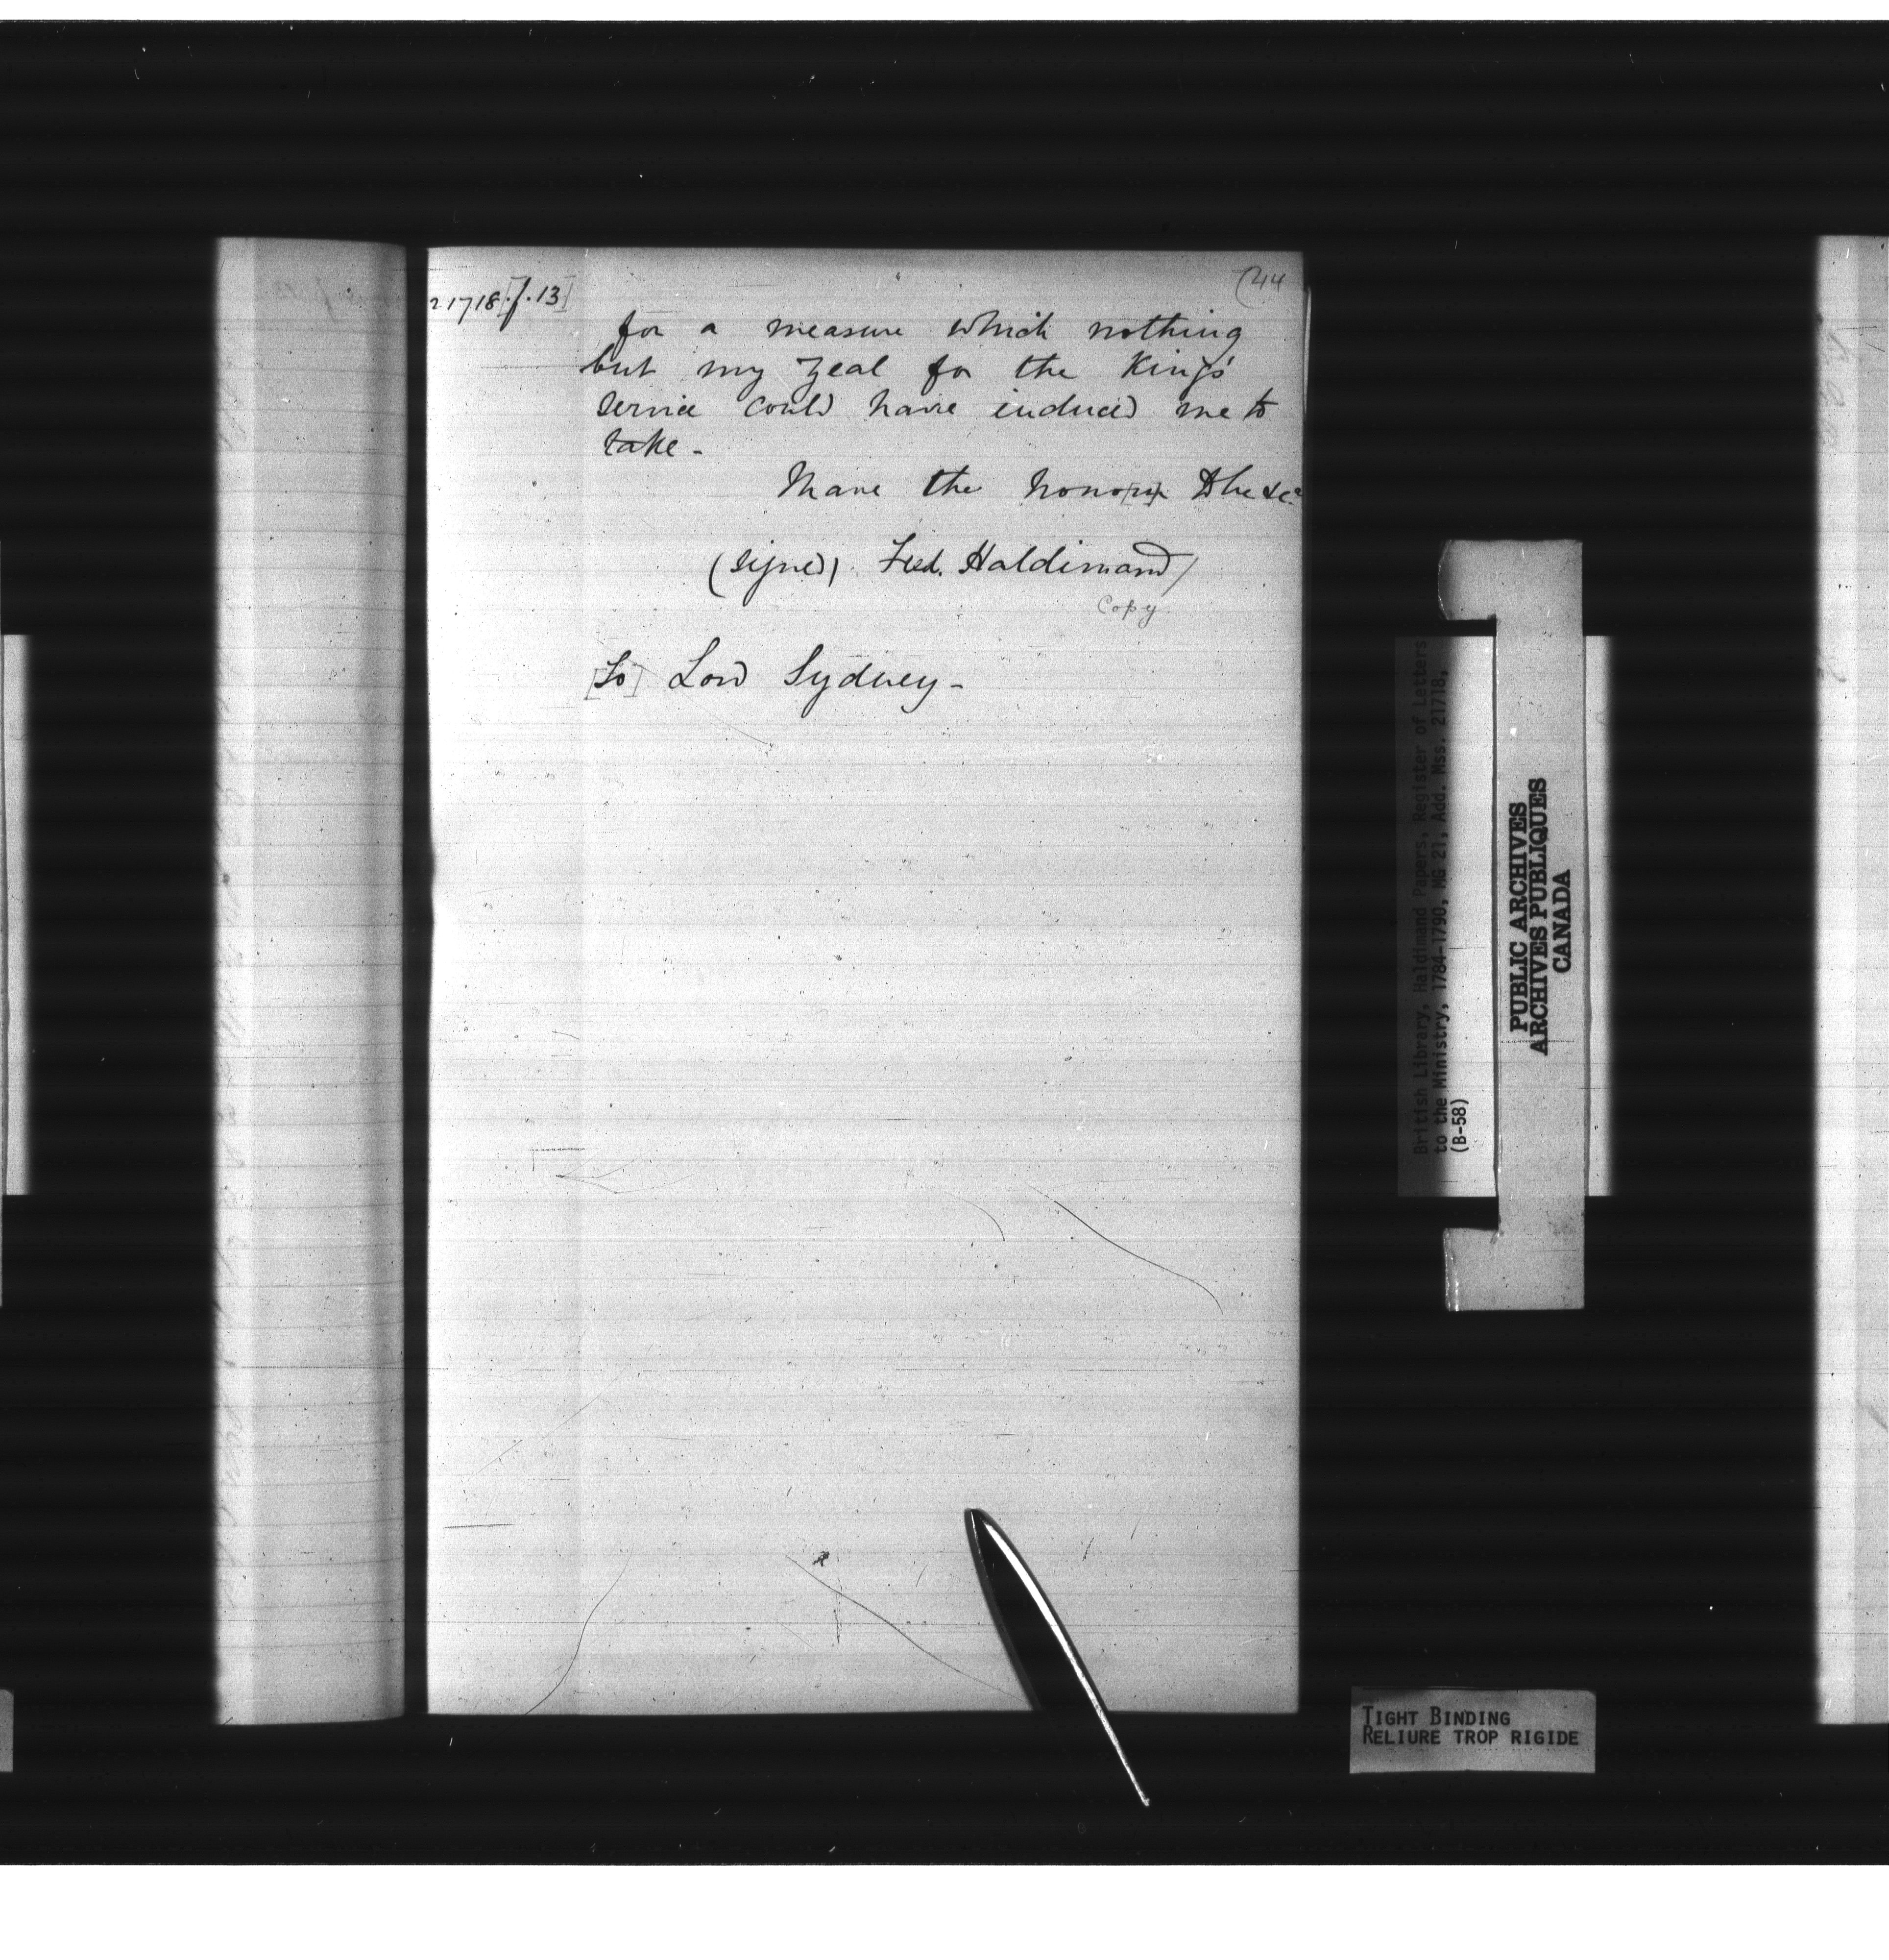 21718 [f. 13]
(44
for a measure which nothing
but my zeal for the King's
service could have induced me to
take -
I have the honor to be &c.
(signed) Fred. Haldimand/
Copy
[To] Lord Sydney -
British Library, Haldimand Papers, Register of Letters
to the Ministry, 1784-1790, MG 21, Add. Mss. 21718,
(B-58)
PUBLIC ARCHIVES
ARCHIVES PUBLIQUES
CANADA
TIGHT BINDING
RELIURE TROP RIGIDE